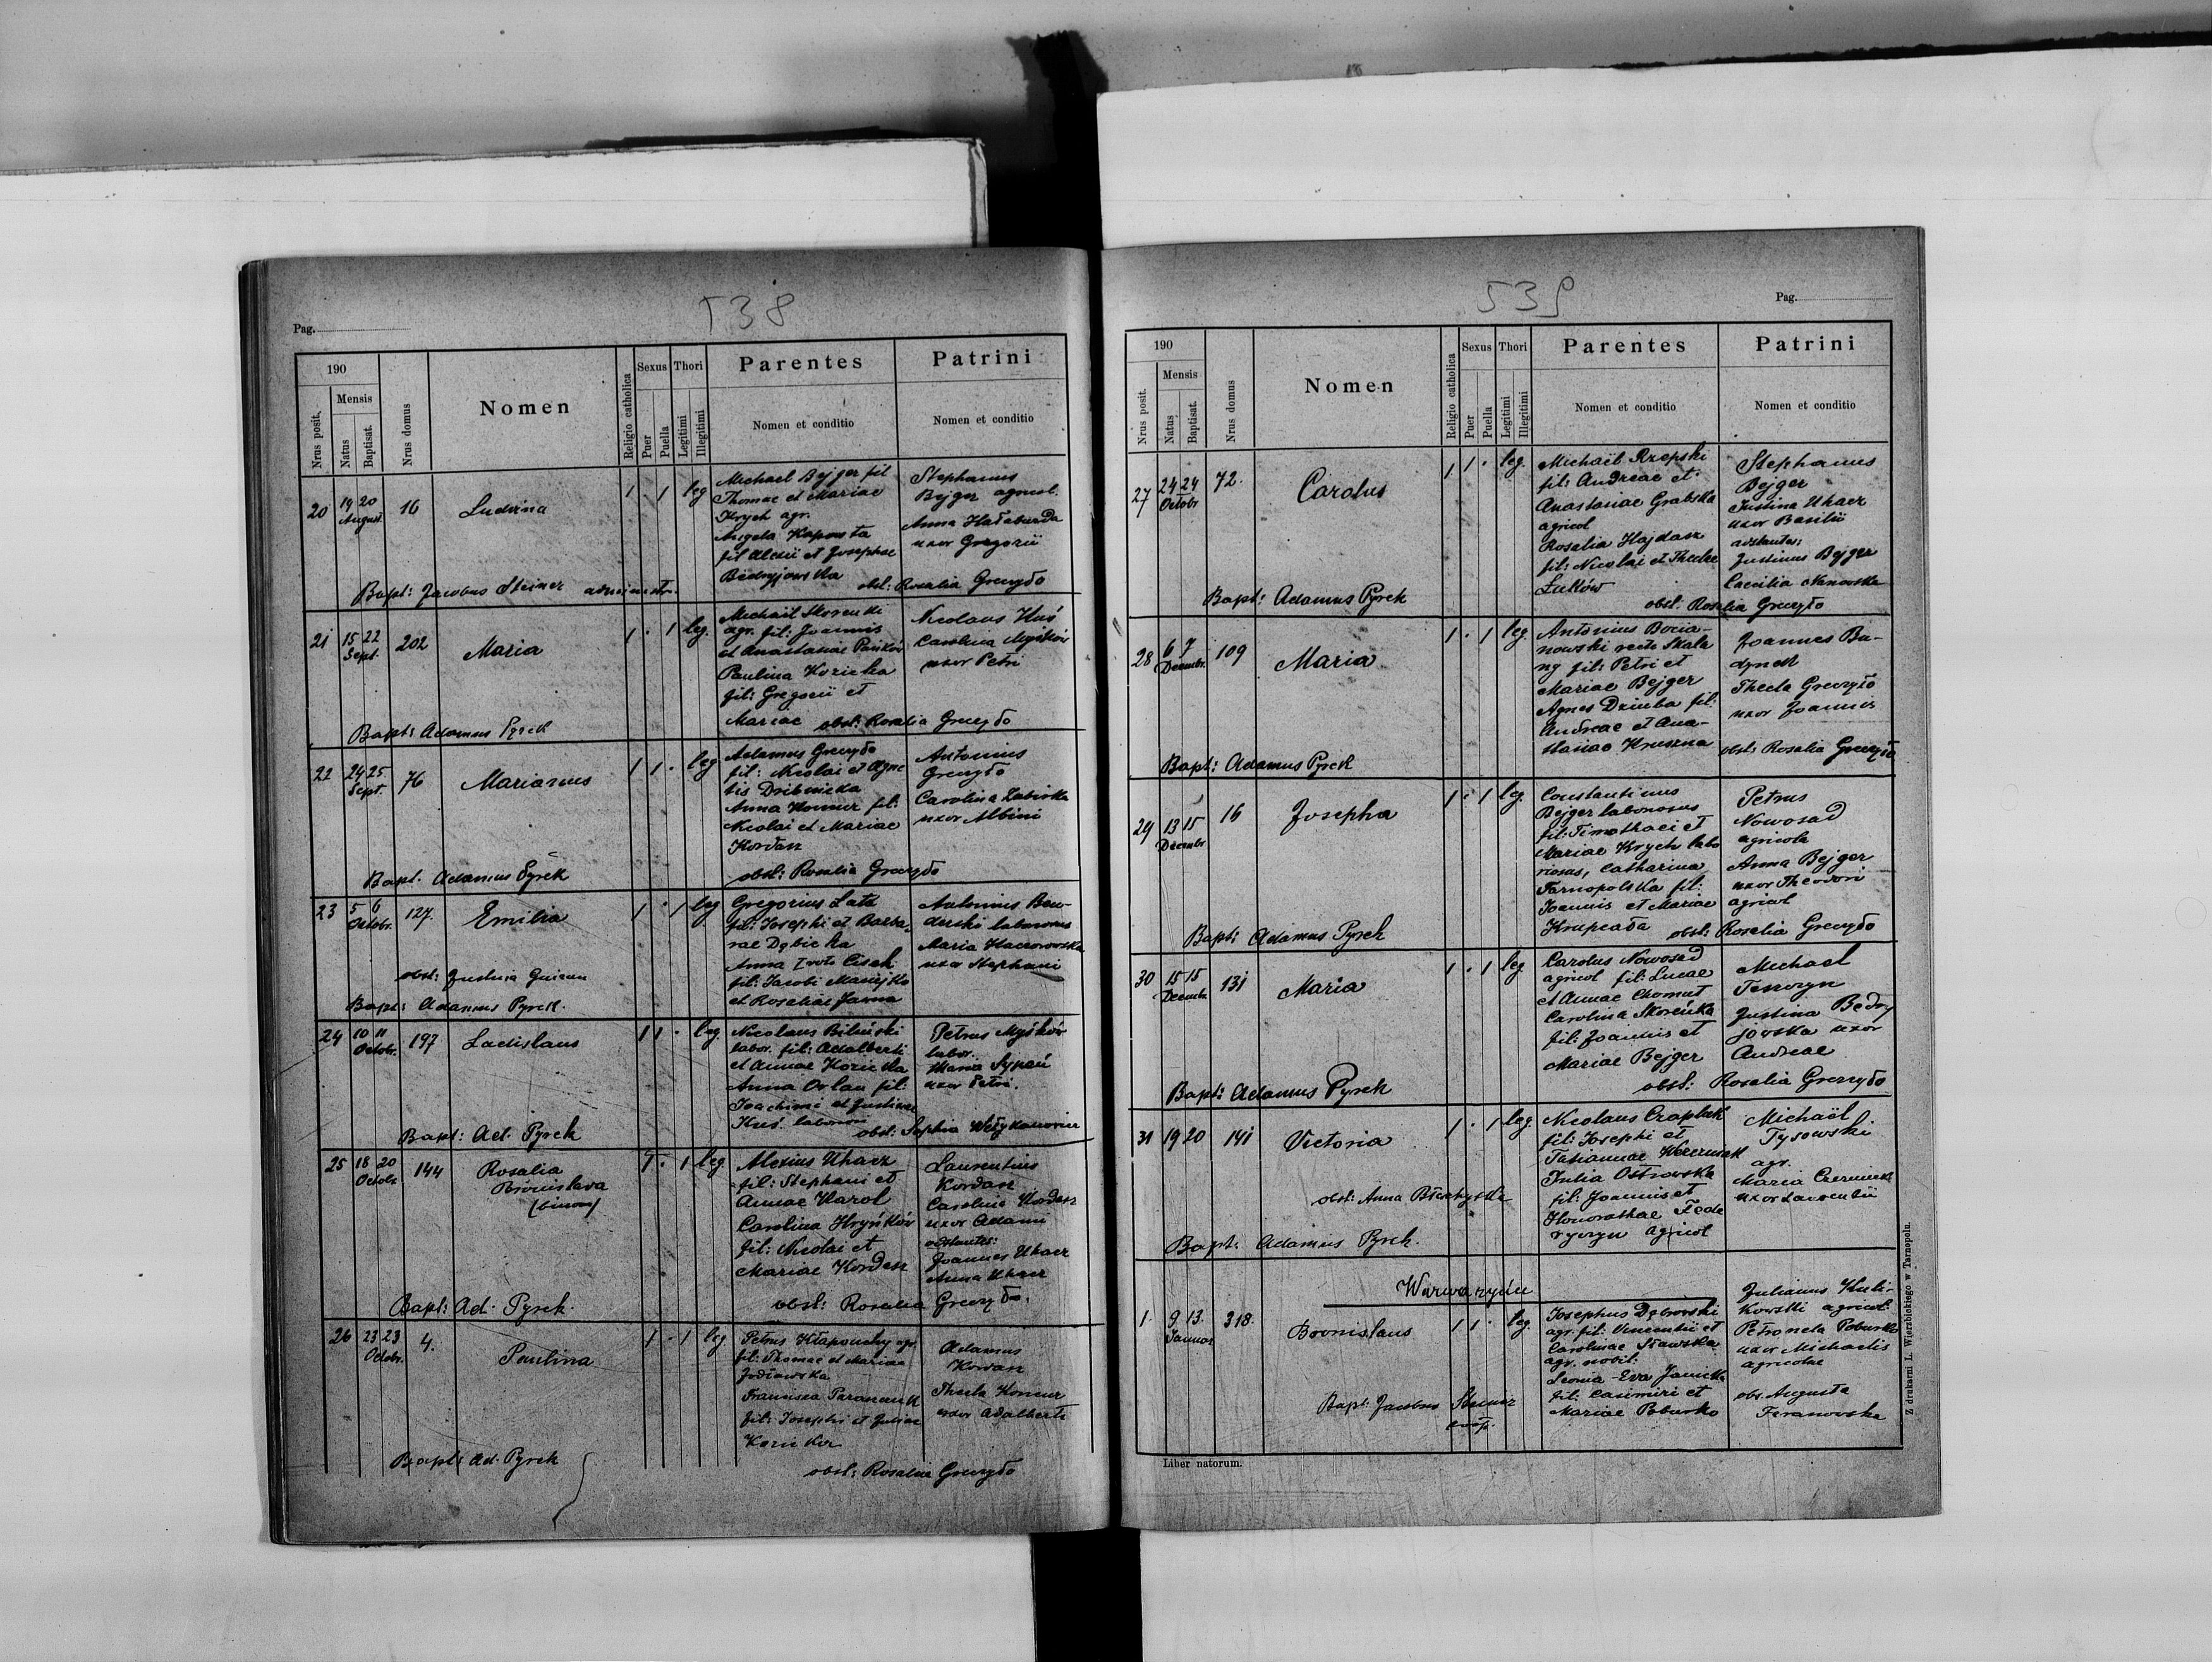 538
Pag.
190
Mensis
Nrus posit.
Natus
Baptisat.
Nrus domus
Nomen
Religio catholica
Sexus
Puer
Puella
Thori
Legitimi
Illegitimi
Parentes
Nomen et conditio
Patrini
Nomen et conditio
20
19 20
August.
16
Ludvina
1 . 1 leg
Michael Bejger fil
Thomae et Mariae
Krych agr.
Angela Kapousta
fil Alexii et Josephae
Biedryjowska
Stephanus
Bejger agricol.
Anna Hałaburda
uxor Gregorii
Bapt: Jacobus Steiner administr.
obst: Rosalia Greczyło
21
15 22
Sept.
202
Maria
1 . 1 leg.
Michaël Skorenki
agr. fil: Joannis
et Anastasiae Pańków
Paulina Kozicka
fil: Gregorii et
Mariae
Nicolaus Huś
Carolina Myśków
uxor Petri
obst: Rosalia Greczyło
Bapt: Adamus Pyrek
22
24 25
Sept.
76
Marianus
1 1 . leg
Adamus Greczyło
fil: Nicolai et Agne
tis Dribnicka
Anna Konnur fil:
Nicolai et Mariae
Kordasz
Antonius
Greczyło
Carolina Zubicka
uxor Albini
Bapt. Adamus Pyrek
obst: Rosalia Greczyło
23
5 6
Octobr.
127.
Emilia
1 . 1 leg
Gregorius Lata
fil: Josephi et Barba-
rae Dębicka
Anna Cisek
fil: Jacobi Maciejko
et Rosaliae Jawna
Antonius Ben-
derski laboriosus
Maria Kaczorowska
uxor Stephani
obst: Justina
Bapt: Adamus Pyrek.
24
10 11
Octobr.
197
Ladislaus
1 1 . leg.
Nicolaus Biliński
labor. fil: Adalberti
et Annae Kozicka
Anna Orlan fil:
Joachimi et Justinae
Kuś. laborios
Petrus Myśków
labor.
Maria Sypeń
uxor Petri.
Bapt: Ad. Pyrek
obst: Sophia Wełykanowicz
25
18 20
Octobr
144
Rosalia
Bronislava
(binom)
1 . 1 leg.
Alexius Uhacz
fil: Stephani et
Annae Karol
Carolina Hryńków
fil: Nicolai et
Mariae Kordasz
Laurentius
Kordasz
Carolina Kordasz
uxor Adami
adstantes:
Joannes Uhacz
Anna Uhacz
obst: Rosalia Greczyło.
Bapt: Ad. Pyrek.
26
23 23
Octobr.
4.
Paulina
1 . 1 leg.
Petrus Kłapouchy agr.
fil: Thomae et Mariae
Jodłowska
Francisca Paranczuk
fil: Josephi et Juliae
Kozicka
Adamus
Kordasz
Thecla Konnur
uxor Adalberti
Bapt: Ad. Pyrek
obst: Rosalia Greczyło
539
Pag.
190
Mensis
Nrus posit.
Natus
Baptisat.
Nrus domus
Nomen
Religio catholica
Sexus
Puer
Puella
Thori
Legitimi
Illegitimi
Parentes
Nomen et conditio
Patrini
Nomen et conditio
27
24 24
Octobr
72.
Carolus
1 1 . leg.
Michaël Rzepski
fil: Andreae et
Anastasiae Grabska
agricol
Rosalia Hajdasz
fil: Nicolai et Theclae
Łuków
Stephanus
Bejger
Justina Uhacz
uxor Basilii
adstantes:
Justinus Bejger
Caecilia Nanowska
Bapt: Adamus Pyrek
obst: Rosalia Greczyło
28
6 7
Decembr.
109
Maria
1 . 1 leg
Antonius Bocia-
nowski recte Skala
ny fil: Petri et
Mariae Bejger
Agnes Dziuba fil:
Andreae et Ana-
stasiae Kruszna
Joannes Bu-
dynek
Thecla Greczyło
uxor Joannis
obst: Rosalia Greczyło
Bapt: Adamus Pyrek
29
13 15
Decembr
16
Josepha
1 . 1 leg.
Constantinus
Bejger laboriosus
fil: Timothaei et
Mariae Krych labo
riosus, Catharina
Tarnopolska fil:
Joannis et Mariae
Krupcała
Petrus
Nowosad
agricola
Anna Bejger
uxor Theodori
agricol
Bapt: Adamus Pyrek
obst: Rosalia Greczyło
30
15 15
Decembr
131
Maria
1 . 1 leg
Carolus Nowosad
agricol fil: Lucae
et Annae Chomut
Carolina Skoreńka
fil: Joannis et
Mariae Bejger
Michael
Teszczyn
Justina Bedry
jowska uxor
Andreae
obst: Rosalia Greczyło
Bapt: Adamus Pyrek
31
19 20
141
Victoria
1 . 1 leg.
Nicolaus Czaplak
fil: Josephi et
Tatiannae
Julia Ostrowska
fil: Joannis et
Honorathae Fede
ryczyn agricol
Michaël
Tysowski
agr.
Maria Czerwinska
uxor Laurentii
obst: Anna
Bapt: Adamus Pyrek.
Warwaryńce
1.
9. 13.
Januar
318.
Bronislaus
1 1 . leg.
Josephus Dąbrowski
agr. fil: Vincentii et
Carolinae Sławska
agr. nobil:
Leonia-Eva Janicka
fil: Casimiri et
Mariae Poburko
Julianus Kuli-
kowski agricol:
Petronela Poburko
uxor Michaelis
agricolae
obs. Augusta
Teranowska
Bapt: Jacobus Steiner
coop.
Liber natorum.
Z drukarni L. Wierzbickiego w Tarnopolu.